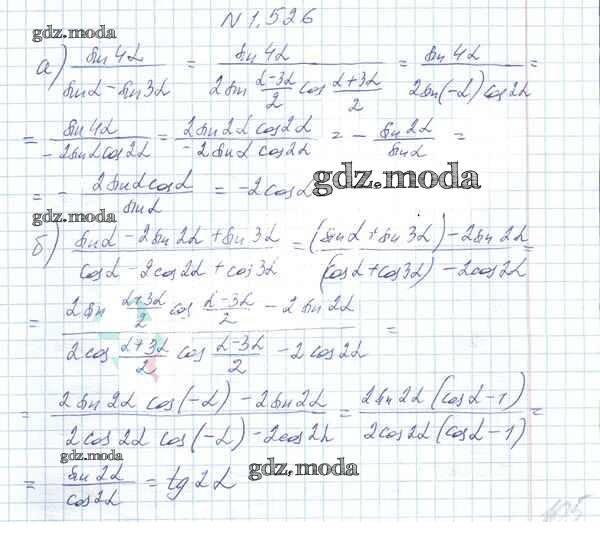 N 1.526
gdz.moda
а) sin 4α / (sin α − sin 3α) = sin 4α / (2 sin (α−3α)/2 cos (α+3α)/2) = sin 4α / (2 sin(−α) cos 2α) =
= sin 4α / (−2 sin α cos 2α) = 2 sin 2α cos 2α / (−2 sin α cos 2α) = − sin 2α / sin α =
= − 2 sin α cos α / sin α = −2 cos α
gdz.moda
gdz.moda
б) (sin α − 2 sin 2α + sin 3α) / (cos α − 2 cos 2α + cos 3α) = ((sin α + sin 3α) − 2 sin 2α) / ((cos α + cos 3α) − 2 cos 2α) =
= (2 sin (α+3α)/2 cos (α−3α)/2 − 2 sin 2α) / (2 cos (α+3α)/2 cos (α−3α)/2 − 2 cos 2α) =
= (2 sin 2α cos(−α) − 2 sin 2α) / (2 cos 2α cos(−α) − 2 cos 2α) = 2 sin 2α (cos α − 1) / (2 cos 2α (cos α − 1)) =
gdz.moda
= sin 2α / cos 2α = tg 2α
gdz.moda